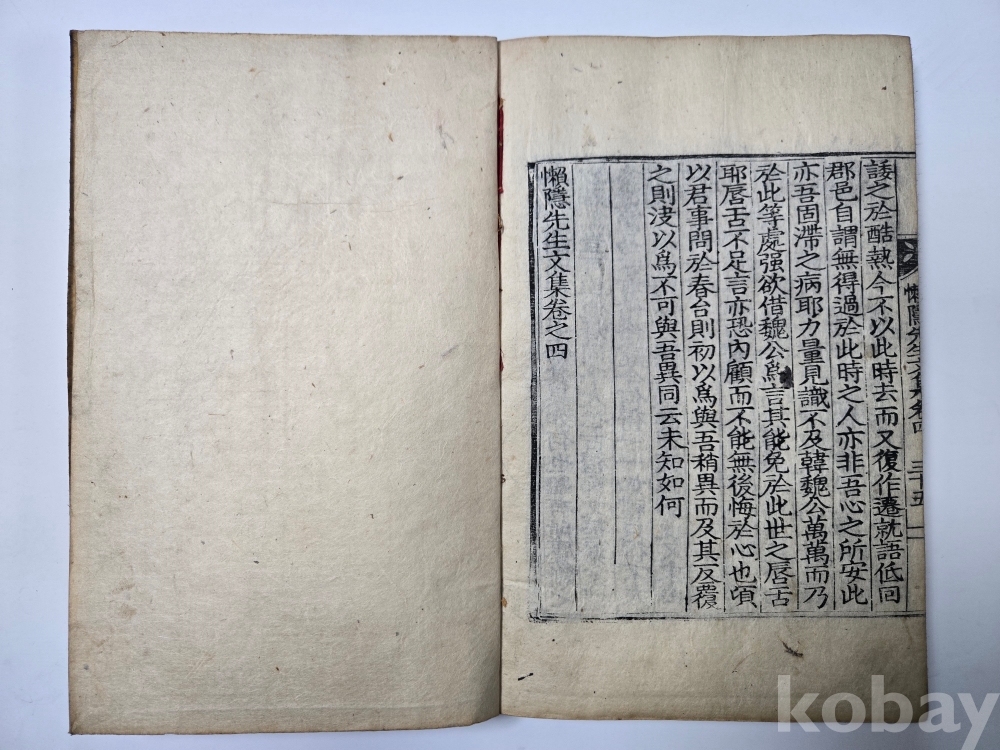 諉之於酷熱今不以此時去而又復作遷就語低回
郡邑自謂無得過於此時之人亦非吾心之所安此
亦吾固滯之病耶力量見識不及韓魏公萬萬而乃
於此等處强欲借魏公爲言其能免於此世之唇舌
耶唇舌不足言亦恐內顧而不能無後悔於心也頃
以君事問於春台則初以爲與吾稍異而及其反覆
之則渡以爲不可與吾異同云未知如何
懶隱先生文集卷之四
懶隱先生文集卷四 三十五
kobay